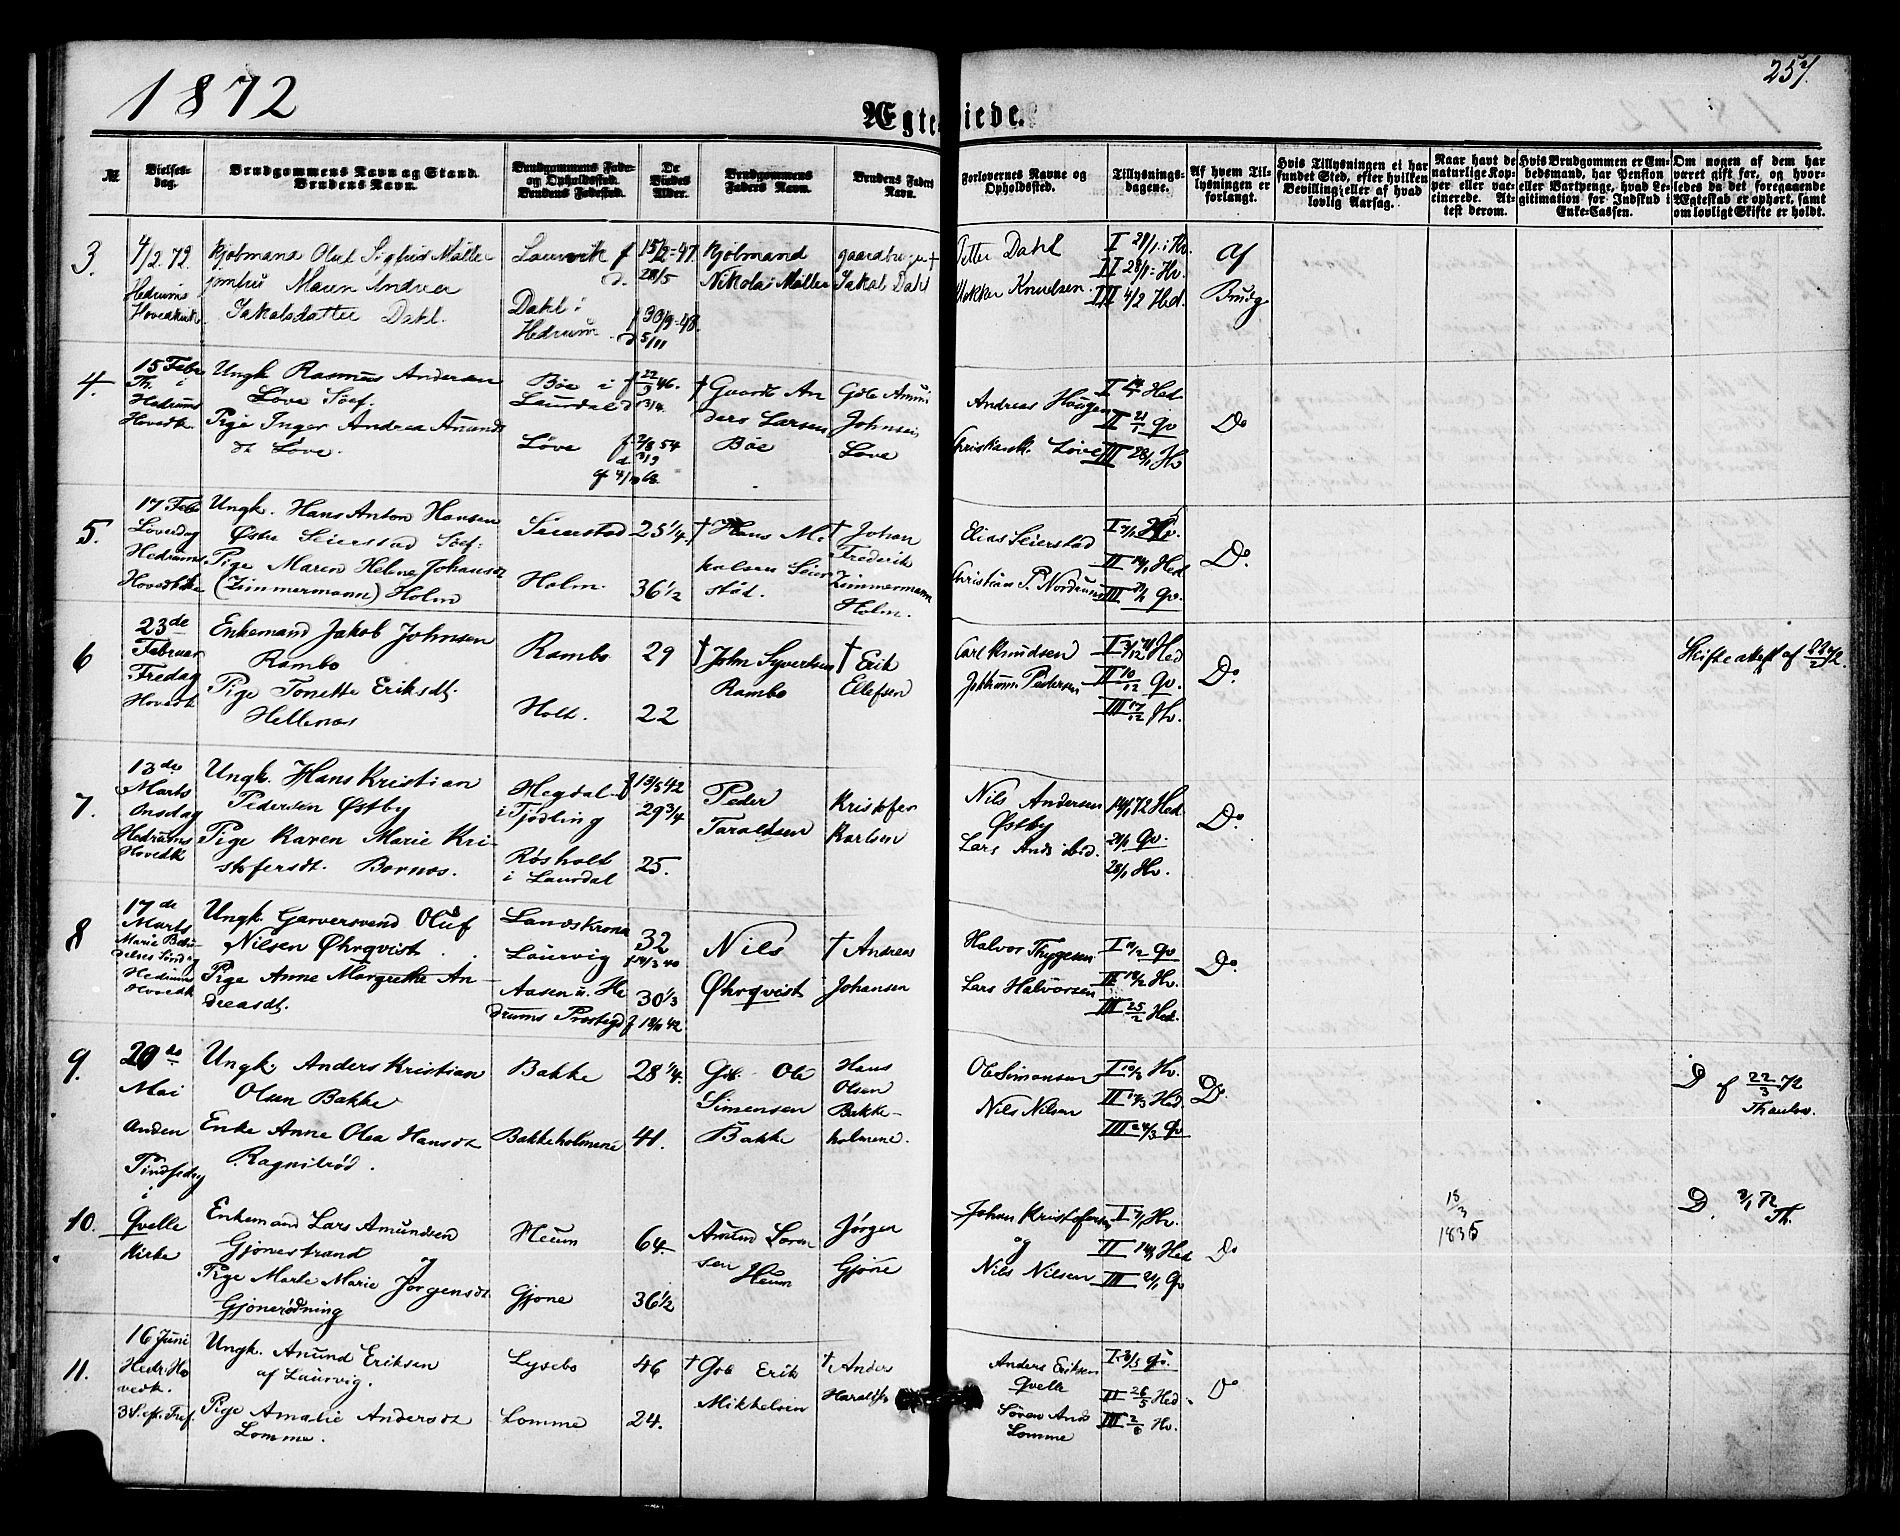 1872
257.
Ægteviede.
№
Vielses-
dag.
Brudgommens Navn og Stand.
Brudens Navn.
Brudgommens Føde-
og Opholdssted.
Brudens Fødested.
De
Viedes
Alder.
Brudgommens
Faders Navn.
Brudens Faders
Navn.
Forlovernes Navne og
Opholdssted.
Tillysnings-
dagene.
Af hvem Til-
lysningen er
forlangt.
Hvis Tillysningen ei har
fundet Sted, efter hvilken
Bevilling eller af hvad
lovlig Aarsag.
Naar havt de
naturlige Kop-
per eller vac-
cinerede. At-
test derom.
Hvis Brudgommen er Em-
bedsmand, har Pension
eller Vartpenge, hvad Le-
gitimation for Indskud i
Enke-Cassen.
Om nogen af dem har
været gift før, og hvor-
ledes da det foregaaende
Ægteskab er ophørt, samt
om lovligt Skifte er holdt.
3.
4/2. 72.
Hedrums
Hovedkirk
Kjøbmand Oluf Sigfrus Møller
jomfru Maren Andrea
Jakobsdatter Dahl.
Laurvik f
d.
Dahl i
Hedrum
15/2-47.
28/5
f 30/9-48.
d 5/11
Kjøbmand
Nikolai Møller
gaardbruger +
Jakob Dahl
Petter Dahl
Knudsen
I 21/1 i Hv.
II 28/1 Hv.
III 4/2 Hed.
Af
Brudg
4.
15 Febr
Th. i
Hedrums
Hovedk.
Ungk. Rasmus Andersen
Løve Søef.
Pige Inger Andrea Anunds
dt Løve.
Bøe i
Laurdal
Løve
f 22/9 46.
f 2/8 54
d 3/9
† Gaardb An
ders Larsen
Bøe
Gdb Anund
Johnsen
Løve
Andreas Haugen
Løve
I 14/1 Hed
II 21/1 Qv
III 28/1 Hv
Do
5.
17 Feb
Løverdag
Hedrums
Hovedkirke
Ungk. Hans Anton Hansen
Østre Seierstad Søef:
Pige Maren Helene Johansdt
(Zimmermann) Holm
Seierstad
Holm.
25 1/4
36 1/2
† Hans Mi
kalsen Seier
stad.
† Johan
Frederik
Zimmermann
Holm.
Elias Seierstad
Christian P. Nordrum
I 7/1 Hv.
II 14/1 Hed
III 21/1 Qv.
Do.
6
23de
Februar
Fredag
Hovedk
Enkemand Jakob Johnsen
Rambo
Pige Tonette Eriksdt.
Hellenes
Rambo
Holt.
29
22
† John Syvertsen
Rambo
† Erik
Ellefsen
Carl Knudsen
Johan Pedersen
I 3/12 71 Hed
II 10/12 Qv.
III 17/12 Hv.
Do.
Skifteattest af 22/2 72.
7.
13de
Marts
Onsdag
Hedrums
Hovedk
Ungk. Hans Kristian
Pedersen Østby
Pige Karen Marie Kri-
stofersdt. Bornes.
Hegdal
i Tjødling
Røsholt
i Laurdal
f 13/5 42
29 3/4
25.
Peder
Taraldsen
Kristofer
Karlsen
Nils Andersen
Østby
Lars Ands ibid.
14/1 72 Hed
21/1 Qv.
28/1 Hv.
Do.
8
17de
Marts
Marie Bebu-
delses Søndag
Hedrums
Hovedk
Ungk. Garversvend Oluf
Nilsen Øhrqvist
Pige Anne Margrethe An-
dreasdt.
Landskrona
Laurvig
Aasen u. He
drums Prestegd
32
f 14/3 40
30 1/3
f 18/11 42
Nils
Øhrqvist
† Andreas
Johansen
Halvor Thygesen
Lars Halvorsen
I 11/2 Qv
II 18/2 Hv.
III 25/2 Hed.
Do.
9.
20de
Mai
Anden
Pindsedag
i
Ungk. Anders Kristian
Olsen Bakke
Enke Anne Olea Hansdt
Ragnilrød.
Bakke
Bakkeholmene
28 1/4.
41.
Gdb. Ole
Simensen
Bakke
Hans
Olsen
Bakke-
holmene.
Ole Simonsen
Nils Nilsen
I 10/3 Hv.
II 17/3 Hed.
III 24/3 Qv
Do.
D af 22/3 72
Thaulow.
10.
Qvelle
Kirke
Enkemand Lars Amundsen
Gjønestrand
og
Pige Marte Marie Jørgensdt
Gjønerødning
Heum
Gjøne
64.
36 1/2
Amund Lorn
sen
Heum
Jørgen
Gjøne
Johan Kristofersen
og
Nils Nilsen
I 7/1 Hv.
II 14/1 Hed
III 21/1 Qv
Do
18/3
1835
D. 2/1 72
Th.
11.
16 Juni
Hedr: Ho
vedk.
3 S. eft. Tref.
Ungk. Anund Eriksen
af Laurvig.
Pige Amalie Andersdt
Lomme.
Lysebo
Lomme
46
24.
† Gdb Erik
Mikkelsen
† Anders
Haralds
Anders Eriksen
Qvelle
Søren Ands
Lomme
I. Qv.
II 26/5 Hed.
III 2/6 Hv.
Do